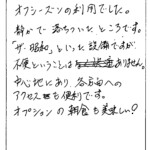 オフシーズンの利用でした。
静かで落ちついたところです。
「ザ・昭和」といった設備ですが、
不便ということはありません。
中心地にあり各方面への
アクセスも便利です。
オプションの朝食も美味しい♪